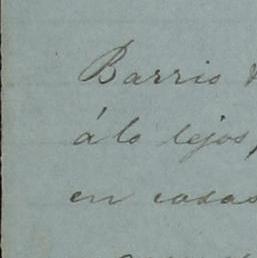 Barrio
álo lejos,
en casas